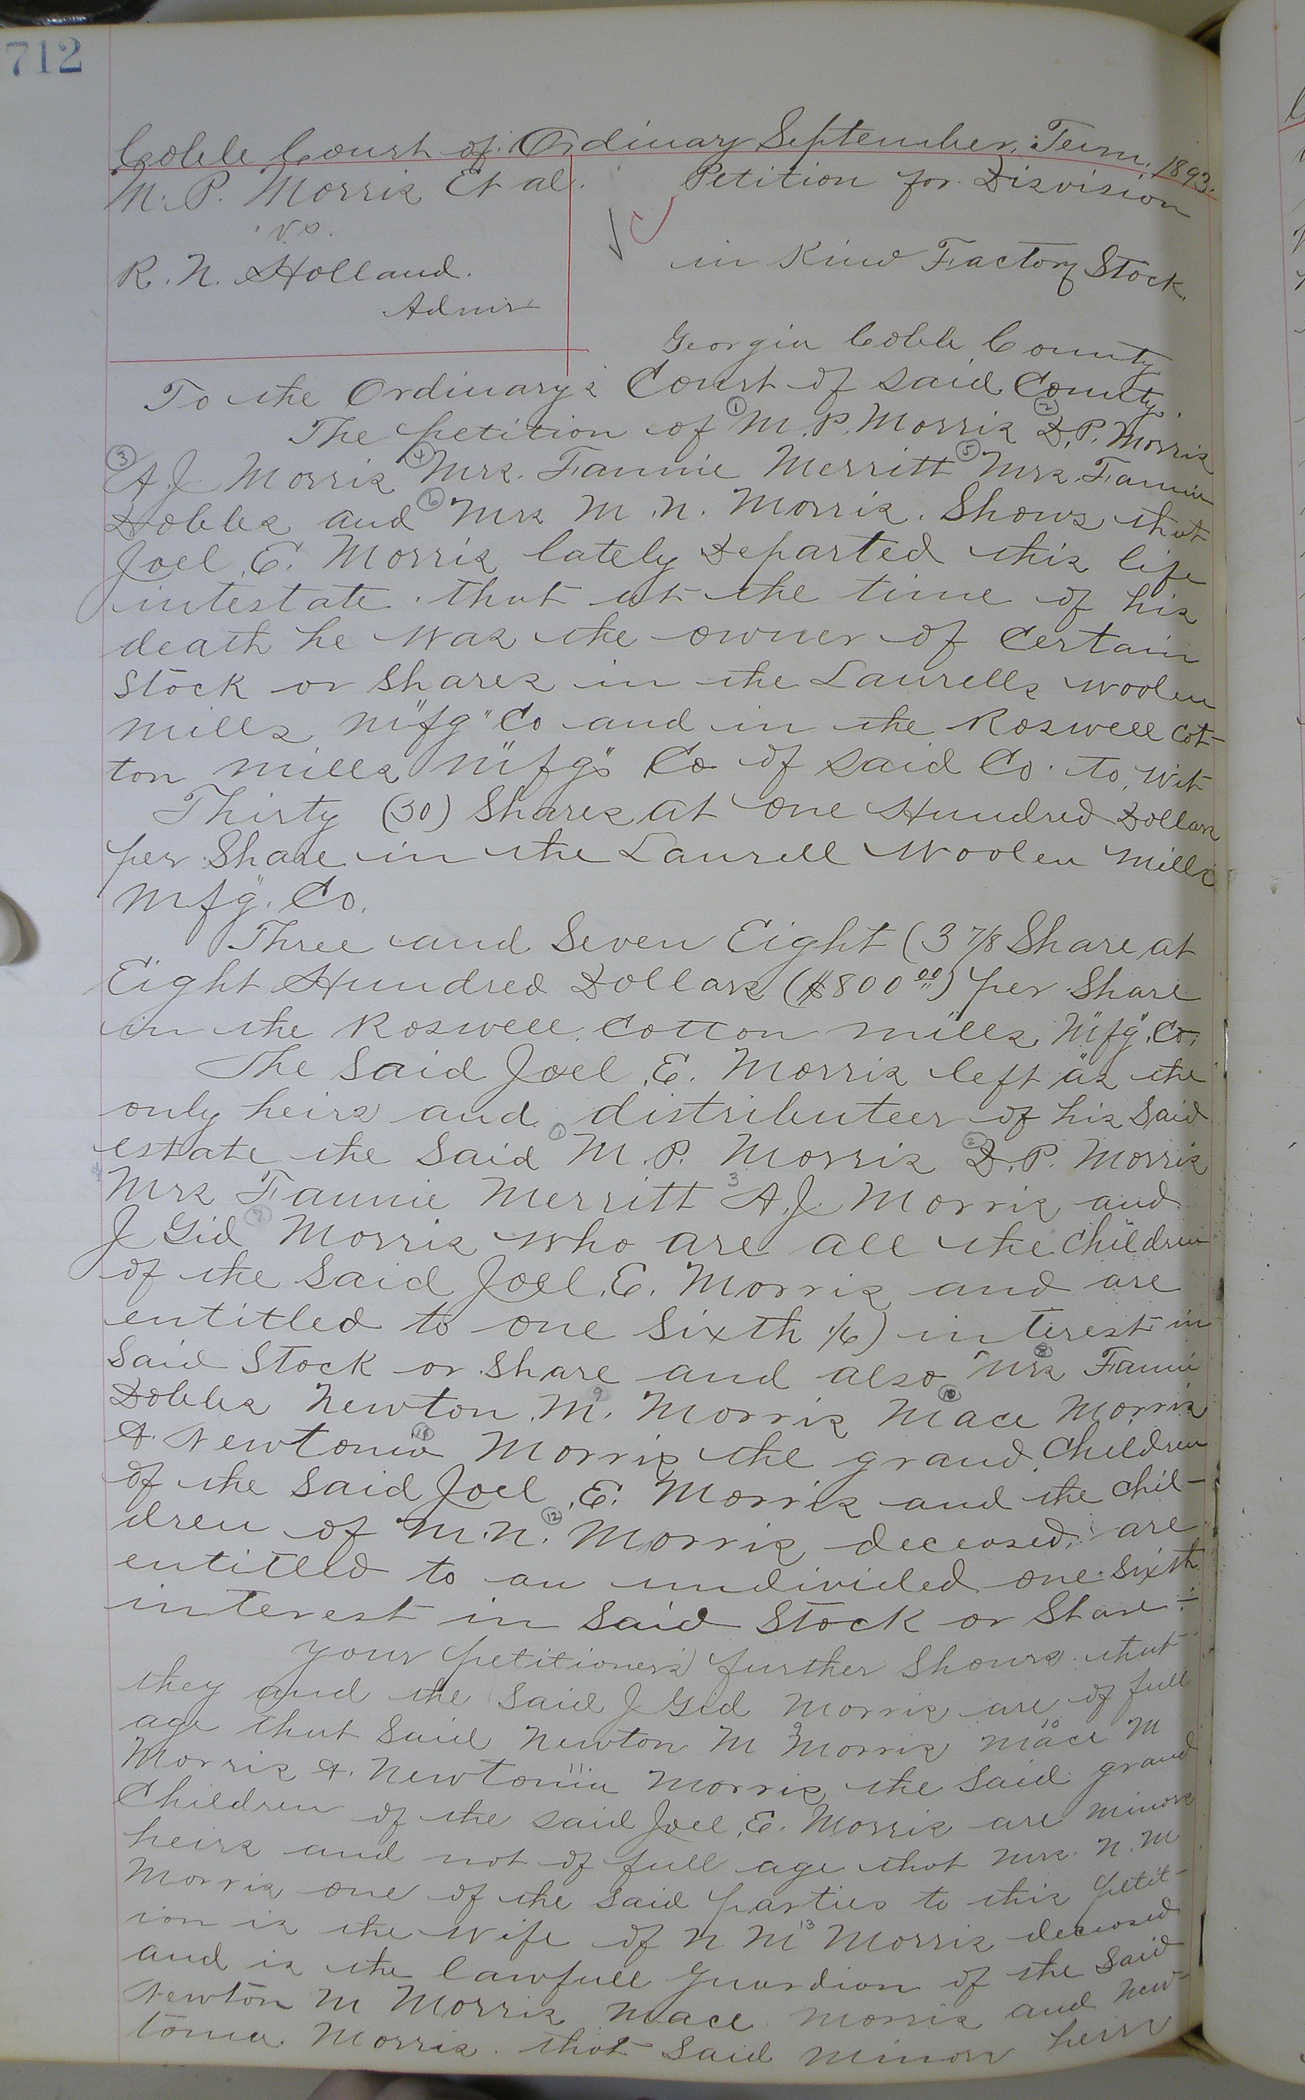 712
Cobb Court of Ordinary September Term. 1893.
M. P. Morris Et al.
vs.
R. N. Holland.
Admir
Petition for Disvision
in Kind Factory Stock.
Georgia Cobb County
To the Ordinary's Court of said County.
The petition of ① M. P. Morris ② D. P. Morris
③ A J. Morris ④ Mrs. Fannie Merritt ⑤ Mrs. Fannie
Dobbs and ⑥ Mrs M. N. Morris. Shows that
Joel. E. Morris lately Departed this life
intestate. that at the time of his
death he was the owner of Certain
Stock or Shares in the Laurells Woolen
Mills M"fg" Co and in the Roswell Cot-
ton Mills M"fg" Co of said Co. to, Wit
Thirty (30) Shares at One Hundred Dollars
per Share in the Laurell Woolen Mills
M"fg". Co.
Three and Seven Eight (3 7/8 Share at
Eight Hundred Dollars ($800 00) per Share
in the Roswell Cotton Mills, M"fg". Co.
The Said Joel. E. Morris left as the
only heirs and distributees of his Said
estate the Said ① M. P. Morris ② D. P. Morris
Mrs Fannie Merritt 3 A. J. Morris and
J Gid ⑦ Morris who are all the Children
of the Said Joel. E. Morris and are
entitled to one Sixth 1/6) interest in
Said Stock or Share and also Mrs ⑧ Fannie
Dobbs Newton. M. 9 Morris Mace ⑩ Morris
&. Newtonia ⑪ Morris the grand Children
of the Said Joel. E. Morris and the Chil-
dren of M. N. ⑫ Morris deceased, are
entitled to an undivided one Sixth
interest in Said Stock or Share-
your petitioners further Shows that
they and the Said J Gid Morris are of full
age that Said Newton M 9 Morris Mace 10 M
Morris &. Newtonia 11 Morris the Said grand
Children of the said Joel. E. Morris are minors
heirs and not of full age that Mrs. N. M
Morris one of the Said parties to this petit-
ion is the Wife of N M 13 Morris deceased
and is the lawfull Guardian of the Said
Newton M Morris Mace Morris and New-
tonia Morris. that Said Minors heirs